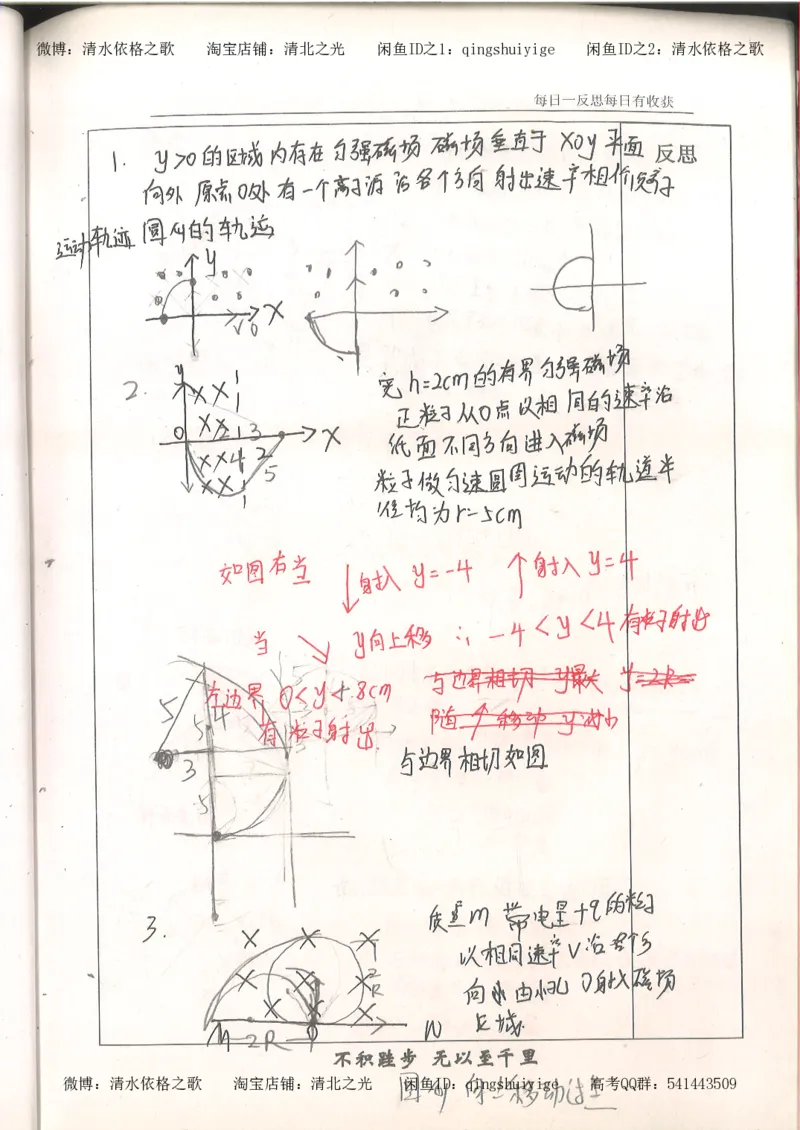 微博：清水依格之歌 淘宝店铺：清北之光 闲鱼ID之1：qingshuiyige 闲鱼ID之2：清水依格之歌
每日一反思每日有收获
反思
1. y>0的区域内存在匀强磁场 磁场垂直于 xoy 平面
向外 原点O处有一个离子源沿各个方向射出速率相
运动轨迹 圆 的轨迹
y
x
2.
y
O
x
宽h=2cm的有界匀强磁场
正粒子从O点以相同的速率沿
纸面不同方向进入磁场
粒子做匀速圆周运动的轨道半
径均为r=5cm
如图有当 ↓射入 y=-4 ↑射入 y=4
当 ↘ y向上移 ∴ -4<y<4有粒子射出
左边界 0<y<8cm
有粒子射出
与边界相切 y最大 y=2R
随↑移动 y减小
与边界相切如图
5
4
3
5
3.
质量m 带电量+q的粒子
以相同速率v沿各个方
向 由小孔O射入磁场
区域
2R
M
2R
N
不积跬步 无以至千里
微博：清水依格之歌 淘宝店铺：清北之光 闲鱼ID：qingshuiyige 高考QQ群：541443509